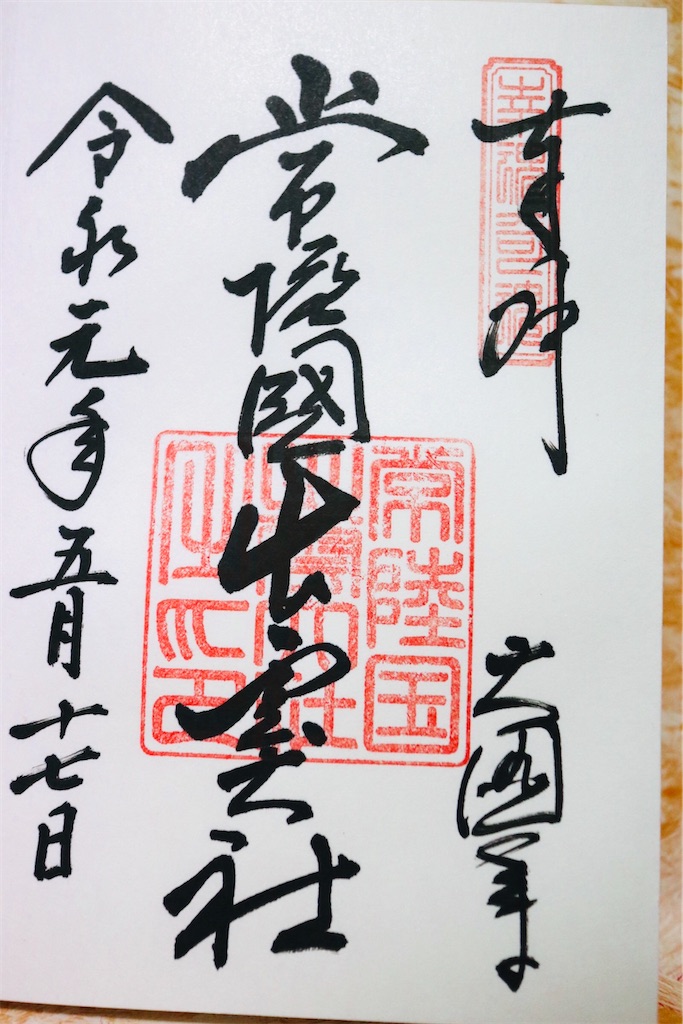 奉拝
常陸國出雲大社
常陸国
出雲大社
令和元年五月十七日